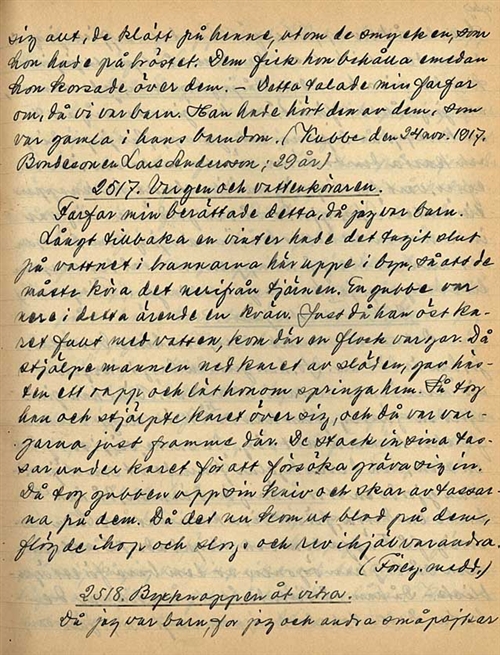 sig allt, de klätt på henne, utom de smycken, som
hon hade på bröstet. Dem fick hon behålla emedan
hon korsade över dem. – Detta talade min farfar
om, då vi var barn. Han hade hört den av dem, som
var gamla i hans barndom. (Kubbe den 24 nov. 1917.
Bondesonen Lars Anderson; 29 år)
2517. Vargen och vattenköraren.
Farfar min berättade detta, då jag var barn.
Långt tillbaka en vinter hade det tagit slut
på vattnet i brunnarna här uppe i byn, så att de
måste köra det nerifrån tjärnen. En gubbe var
nere i detta ärende en kväll. Just då han öst ka-
ret fullt med vatten, kom där en flock vargar. Då
stjälpte mannen ned karet av släden, gav häs-
ten ett rapp och lät honom springa hem. Så tog
han och stjälpte karet över sig, och då var var-
garna just framme där. De stack in sina tas-
sar under karet för att försöka gräva sig in.
Då tog gubben upp sin kniv och skar av tassar-
na på dem. Då det nu kom ut blod på dem,
flög de ihop och slogs och rev ihjäl varandra.
(Föreg. medd.)
2518. Byxknappen åt vitra.
Då jag var barn, for jag och andra småpojkar